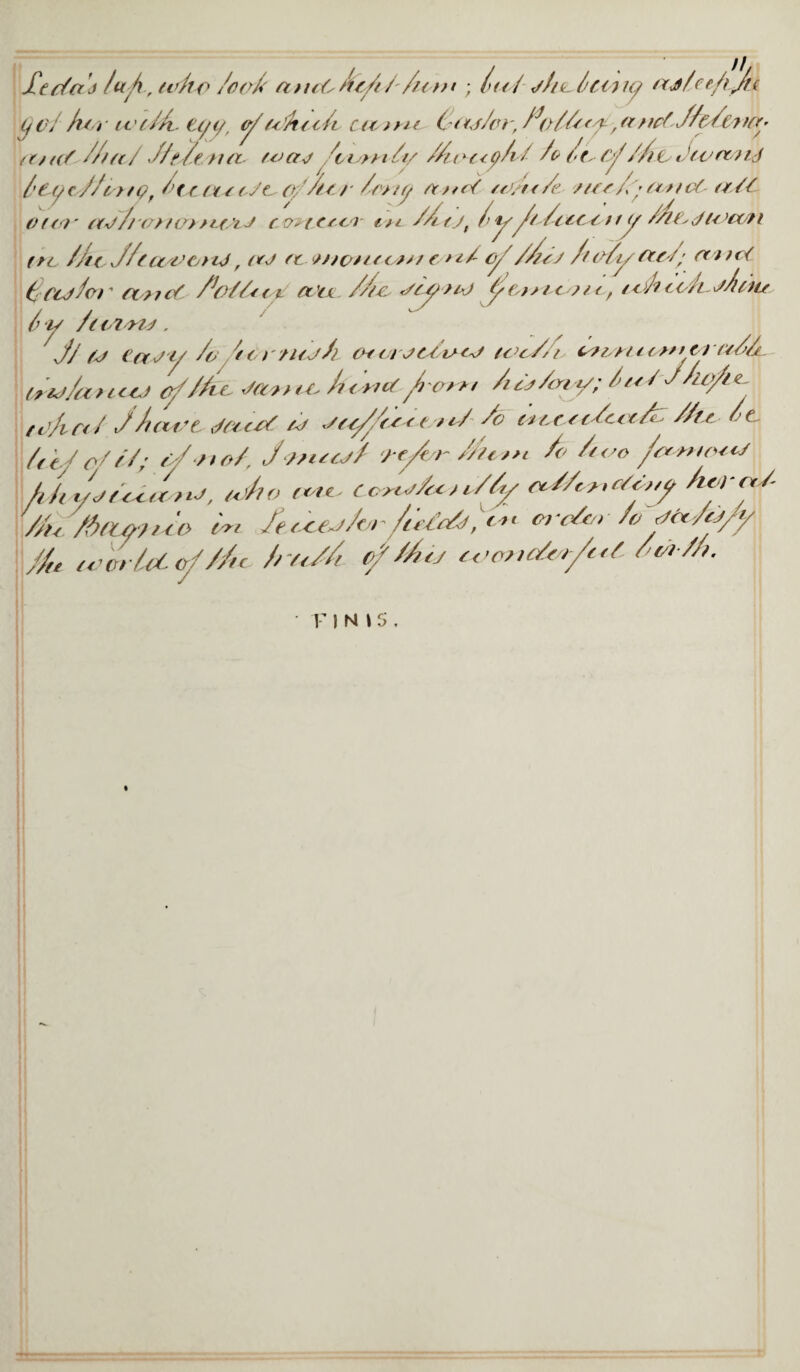 Leda's lap, who took and kept him ; but she being asleep, he
got her with egg, of which came Castor, Pollux, and Helena.
and that Helena was firmly thought to be of the Swans
begetting, because of her long and white neck; and all
our astronomers concur in this, by placing the swan
in the Heavens, as a monument of this holy act; and
Castor and Pollux are the signs Gemini, which shine
by turns.
It is easy to furnish ourselves with innumerable
instances of the same kind from history; but I hope
what I have said is sufficient to inculcate the be
lief of it; if not, I must refer them to two famous
physicians, who are constantly attending her at
the Bagnio in Leicester fields, in order to satisfy
the world of the truth of this wonderful birth.
FINIS.